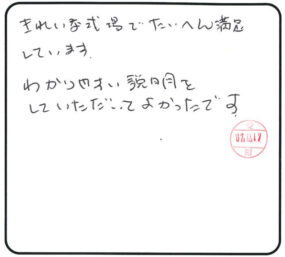 きれいな式場でたいへん満足
しています。
わかりやすい説明を
していただいてよかったです。